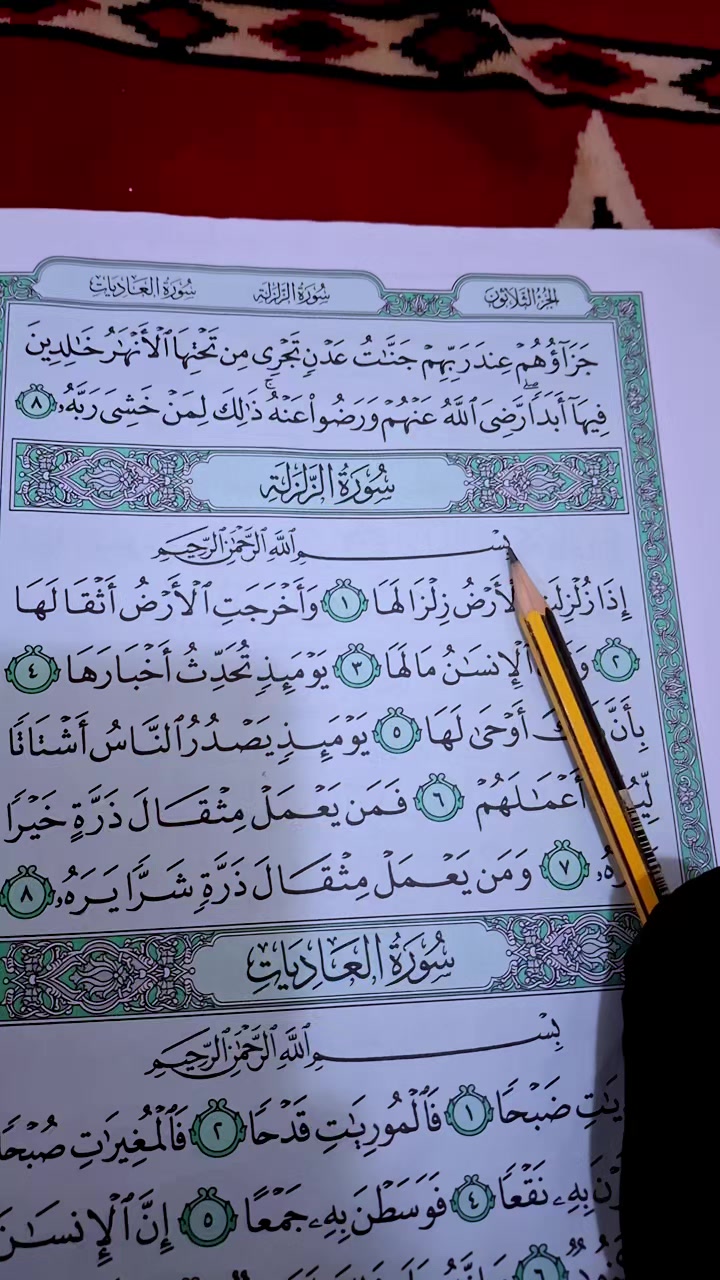 الجزء الثلاثون
سورة الزلزلة
سورة العاديات
جَزَآؤُهُمۡ عِندَ رَبِّهِمۡ جَنَّٰتُ عَدۡنٖ تَجۡرِي مِن تَحۡتِهَا ٱلۡأَنۡهَٰرُ خَٰلِدِينَ
فِيهَآ أَبَدٗاۖ رَّضِيَ ٱللَّهُ عَنۡهُمۡ وَرَضُواْ عَنۡهُۚ ذَٰلِكَ لِمَنۡ خَشِيَ رَبَّهُۥ ٨
سُورَةُ الزَّلْزَلَة
بِسۡمِ ٱللَّهِ ٱلرَّحۡمَٰنِ ٱلرَّحِيمِ
إِذَا ٱلۡأَرۡضُ زِلۡزَالَهَا ١ وَأَخۡرَجَتِ ٱلۡأَرۡضُ أَثۡقَالَهَا
٢ ٱلۡإِنسَٰنُ مَا لَهَا ٣ يَوۡمَئِذٖ تُحَدِّثُ أَخۡبَارَهَا ٤
أَوۡحَىٰ لَهَا ٥ يَوۡمَئِذٖ يَصۡدُرُ ٱلنَّاسُ أَشۡتَاتٗا
أَعۡمَٰلَهُمۡ ٦ فَمَن يَعۡمَلۡ مِثۡقَالَ ذَرَّةٍ خَيۡرٗا
٧ وَمَن يَعۡمَلۡ مِثۡقَالَ ذَرَّةٖ شَرّٗا يَرَهُۥ ٨
سُورَةُ العَادِيَاتِ
بِسۡمِ ٱللَّهِ ٱلرَّحۡمَٰنِ ٱلرَّحِيمِ
ضَبۡحٗا ١ فَٱلۡمُورِيَٰتِ قَدۡحٗا ٢ فَٱلۡمُغِيرَٰتِ صُبۡحٗا
بِهِۦ نَقۡعٗا ٤ فَوَسَطۡنَ بِهِۦ جَمۡعًا ٥ إِنَّ ٱلۡإِنسَٰنَ
٦